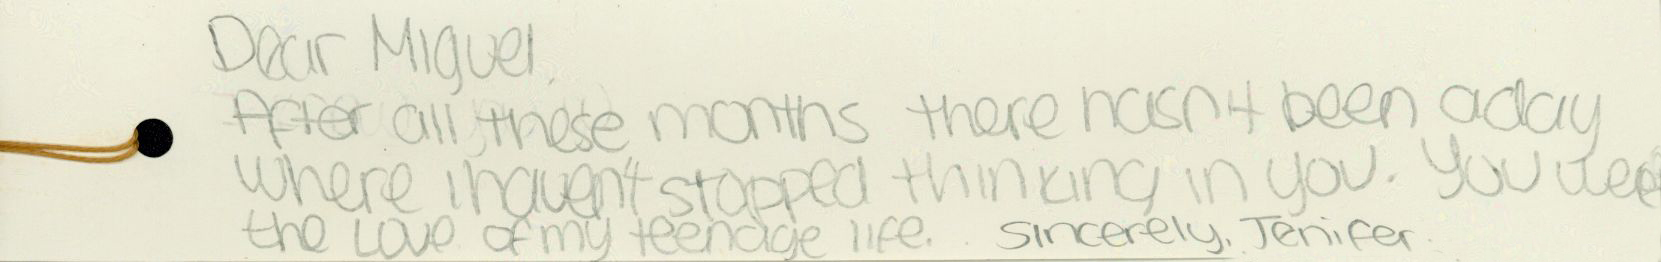 Dear Miguel,
After all these months there hasn't been a day
where i haven't stopped thinking in you. You were
the Love of my teenage life. Sincerely, Jenifer.